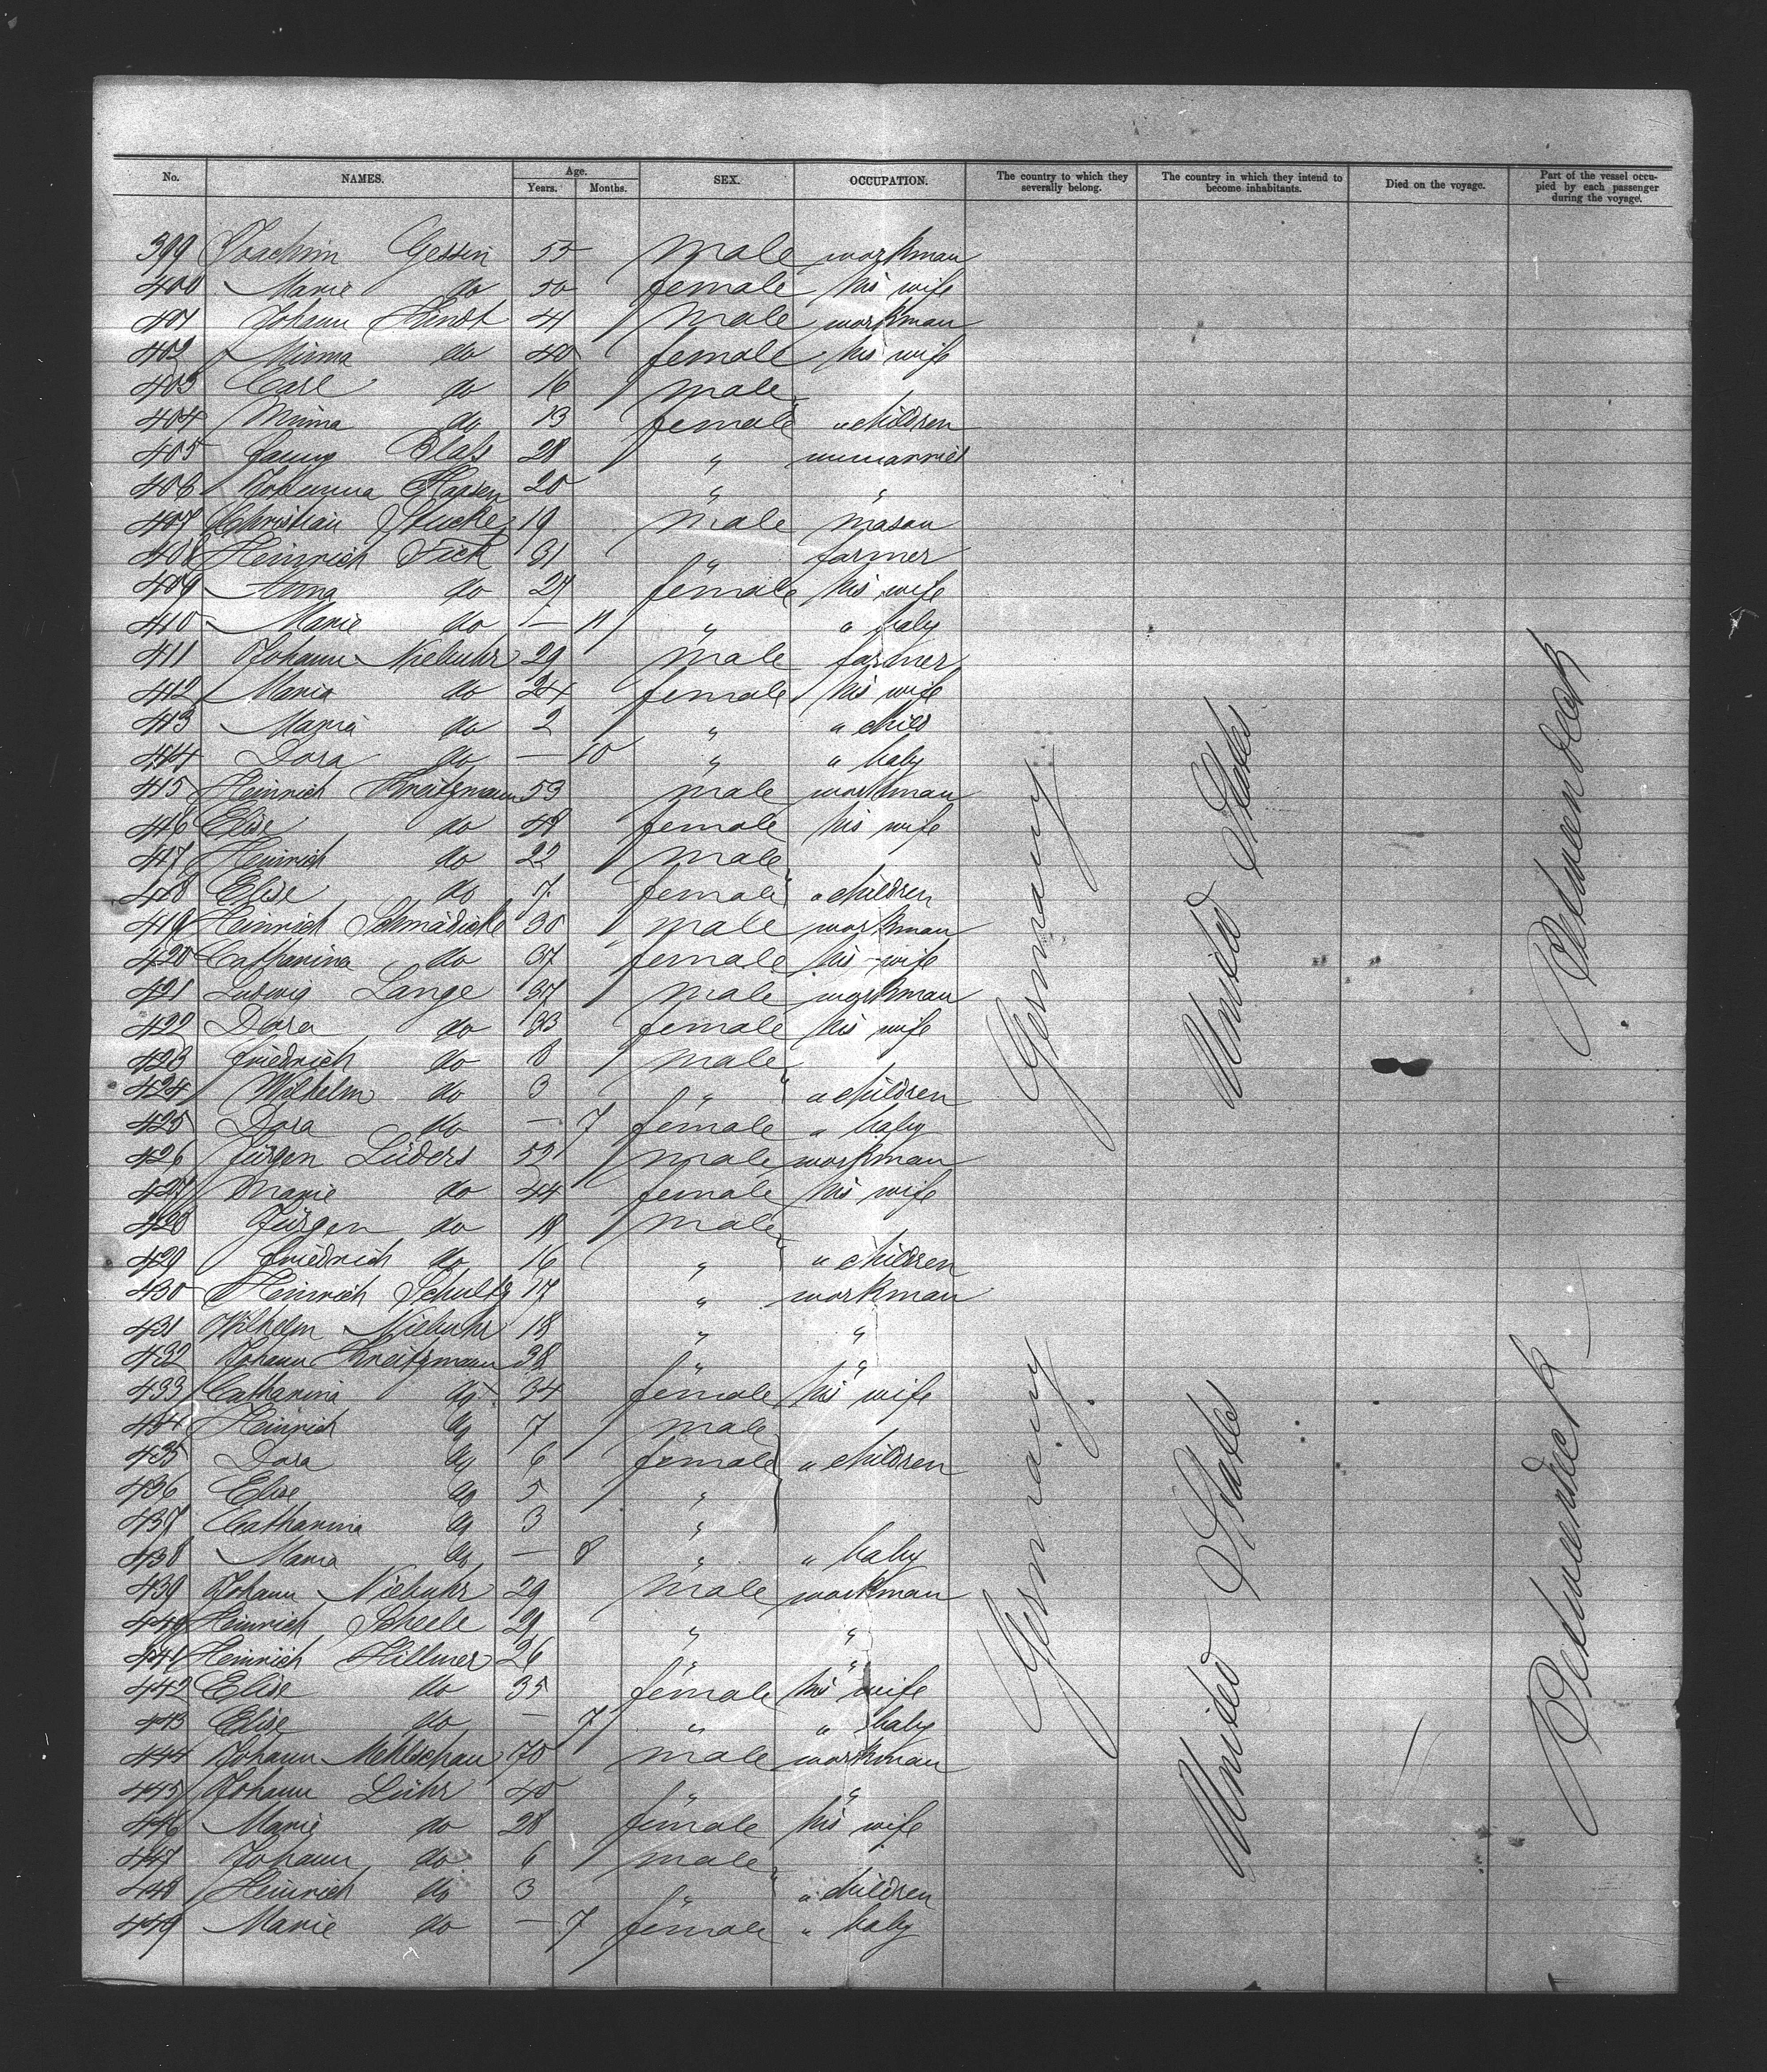 No. NAMES. Age. Years. Months. SEX. OCCUPATION. The country to which they severally belong. The country in which they intend to become inhabitants. Died on the voyage. Part of the vessel occupied by each passenger during the voyage.
399 Joachim Gessin 55 male workman
400 Marie do 50 female his wife
401 Johann Handt 41 male workman
402 Minna do 40 female his wife
403 Carl do 16 male
404 Minna do 13 female " children
405 Fanny 28 " unmarried
406 Johanna 20 " "
407 Christian Stucke 19 male mason
408 Heinrich Sick 31 " farmer
409 Anna do 27 female his wife
410 Marie do — 11 " " baby
411 Johann Niebuhr 29 male farmer
412 Maria do 24 female his wife
413 Maria do 2 " " child
414 Dora do — 10 " " baby
415 Heinrich Kreitzmann 53 male workman
416 Elise do 48 female his wife
417 Heinrich do 22 male
418 Elise do 7 female " children
419 Heinrich Schmädicke 30 male workman
420 Catharina do 37 female his wife
421 Ludwig Lange 37 male workman
422 Dora do 33 female his wife
423 Friedrich do 8 male
424 Wilhelm do 3 " " children
425 Dora do — 7 female " baby
426 Jürgen Lüders 52 male workman
427 Marie do 44 female his wife
428 Jürgen do 18 male
429 Friedrich do 16 " " children
430 Heinrich Schultz 17 " workman
431 Wilhelm Niebuhr 18 " "
432 Johann Kreitzmann 38 " "
433 Catharina do 34 female his wife
434 Heinrich do 7 male
435 Dora do 6 female " children
436 Elise do 5 "
437 Catharina do 3 "
438 Maria do — 8 " " baby
439 Johann Niebuhr 29 male workman
440 Heinrich Scheele 29 " "
441 Heinrich Hillmer 26 " "
442 Elise do 35 female his wife
443 Elise do — 7 " " baby
444 Johann Mehlschau 70 male workman
445 Johann Lühr 40 " "
446 Marie do 28 female his wife
447 Johann do 6 male
448 Heinrich do 3 " " children
449 Marie do — 7 female " baby
Germany
United States
Betweendeck
Germany
United States
Betweendeck